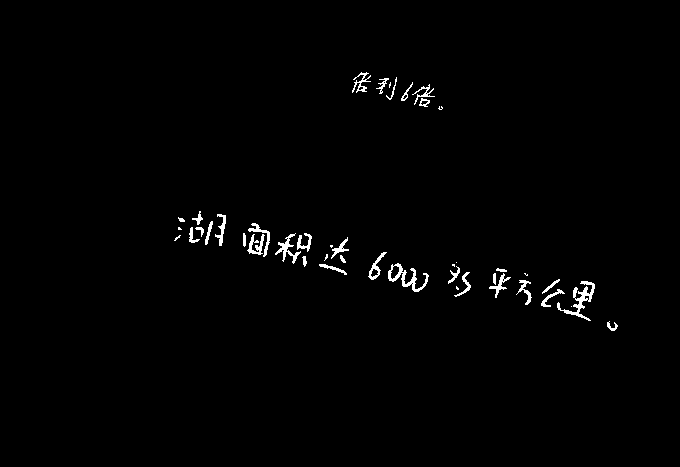 倍到6倍。
湖面积达6000多平方公里。